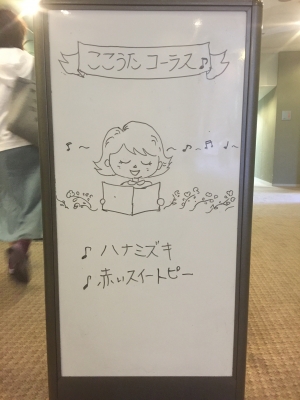 ここうた コーラス♪
♪ ハナミズキ
♪ 赤いスイートピー